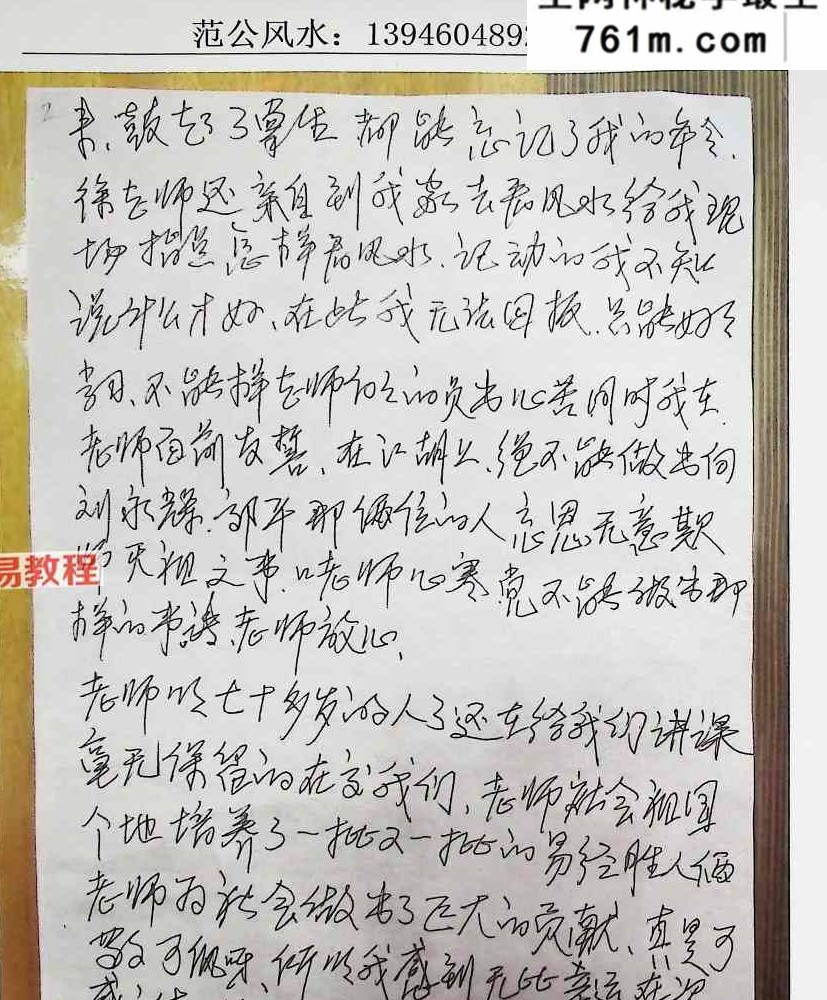 范公风水：1394604892
761m.com
来、鼓起了 都能忘记了我的年令.
徐老师还亲自到我家去看风水给我现
场指点怎样看风水.记动的我不知
说什么才好、在此我无法回报.只能好好
学习、不能 老师们的 心苦同时我在
老师面前发誓、在江胡上、绝不能做出向
刘永 . 平那俩位的人忘恩无意欺
师灭祖文事.叫老师心寒 不能做出那
样的事 老师放心、
老师以七十多岁的人了还在给我们讲课
毫无保留的在交我们、老师 社会祖国
个地培养了一批又一批的易经
老师为社会做出了巨大的贡献、真是可
敬可佩呀、所以我感到无比幸运在次
易教程